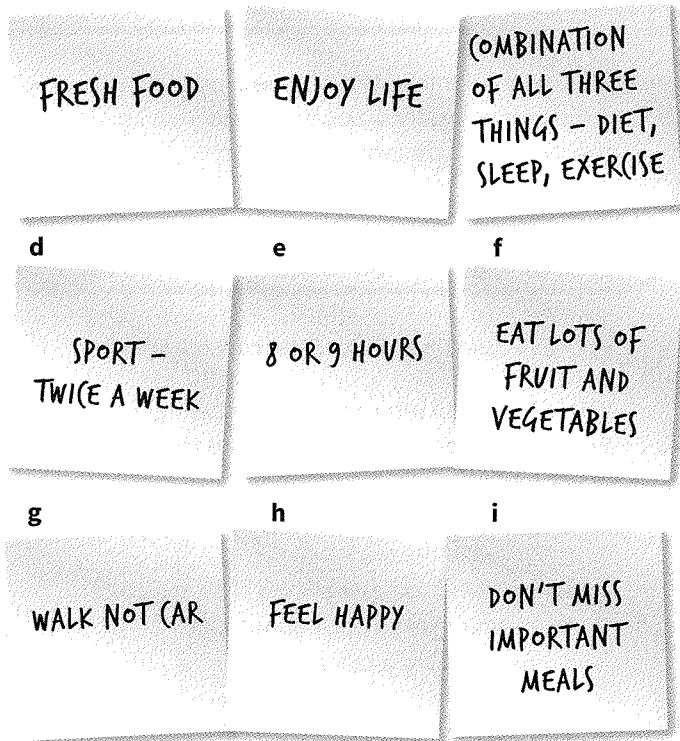 FRESH FOOD
ENJOY LIFE
COMBINATION
OF ALL THREE
THINGS – DIET,
SLEEP, EXERCISE
d
e
f
SPORT –
TWICE A WEEK
8 OR 9 HOURS
EAT LOTS OF
FRUIT AND
VEGETABLES
g
h
i
WALK NOT CAR
FEEL HAPPY
DON'T MISS
IMPORTANT
MEALS